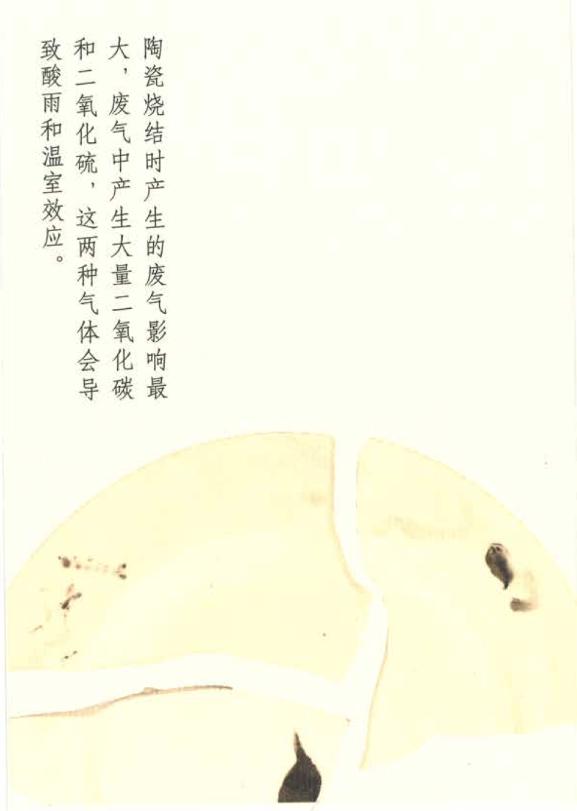 陶瓷烧结时产生的废气影响最
大，废气中产生大量二氧化碳
和二氧化硫，这两种气体会导
致酸雨和温室效应。